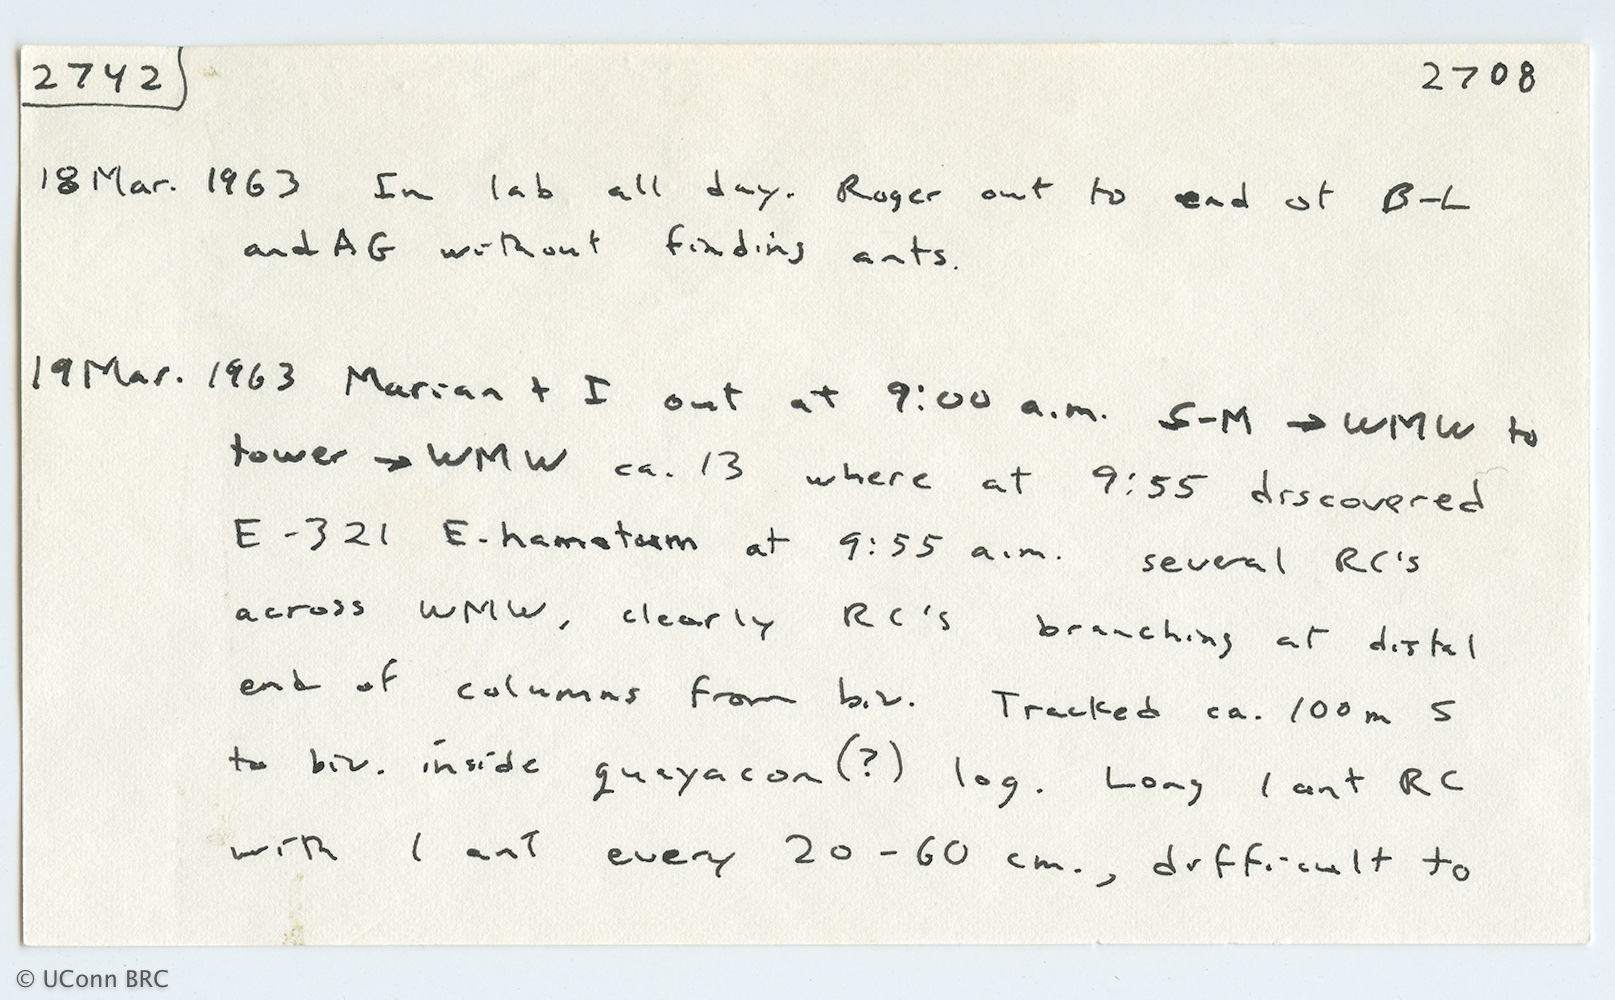 2742 2708
18 Mar. 1963 In lab all day. Roger out to end of B-L
and AG without finding ants.
19 Mar. 1963 Marian + I out at 9:00 a.m. S-M → WMW to
tower → WMW ca. 13 where at 9:55 discovered
E-321 E. hamatum at 9:55 a.m. several RC's
across WMW, clearly RC's branching at distal
end of columns from biv. Tracked ca. 100 m S
to biv. inside guayacon (?) log. Long 1 ant RC
with 1 ant every 20-60 cm., difficult to
© UConn BRC